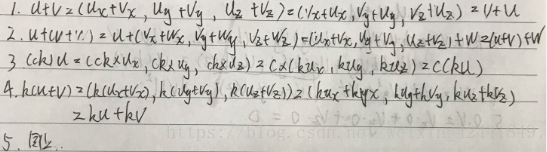 1. u+v=(ux+vx, uy+vy, uz+vz)=(vx+ux, vy+uy, vz+uz)=v+u
2. u+(w+v)=u+(vx+wx, vy+wy, vz+wz)=(ux+vx, uy+vy, uz+vz)+w=(u+v)+w
3 (ck)u=(ck×ux, ck×uy, ck×uz)=c×(kux, kuy, kuz)=c(ku)
4. k(u+v)=(k(ux+vx), k(uy+vy), k(uz+vz))=(kux+kvx, kuy+kvy, kuz+kvz)
=ku+kv
5. 同上.
https://blog.csdn.net/